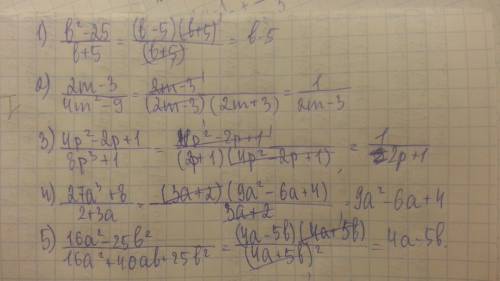 1) \frac{b^2-25}{b+5} = \frac{(b-5)(b+5)^1}{(b+5)} = b-5
2) \frac{2m-3}{4m^2-9} = \frac{2m-3^1}{(2m-3)(2m+3)} = \frac{1}{2m-3}
3) \frac{4p^2-2p+1}{8p^3+1} = \frac{4p^2-2p+1^1}{(2p+1)(4p^2-2p+1)} = \frac{1}{2p+1}
4) \frac{27a^3+8}{2+3a} = \frac{(3a+2)(9a^2-6a+4)}{3a+2} = 9a^2-6a+4
5) \frac{16a^2-25b^2}{16a^2+40ab+25b^2} = \frac{(4a-5b)(4a+5b)^1}{(4a+5b)^2} = 4a-5b